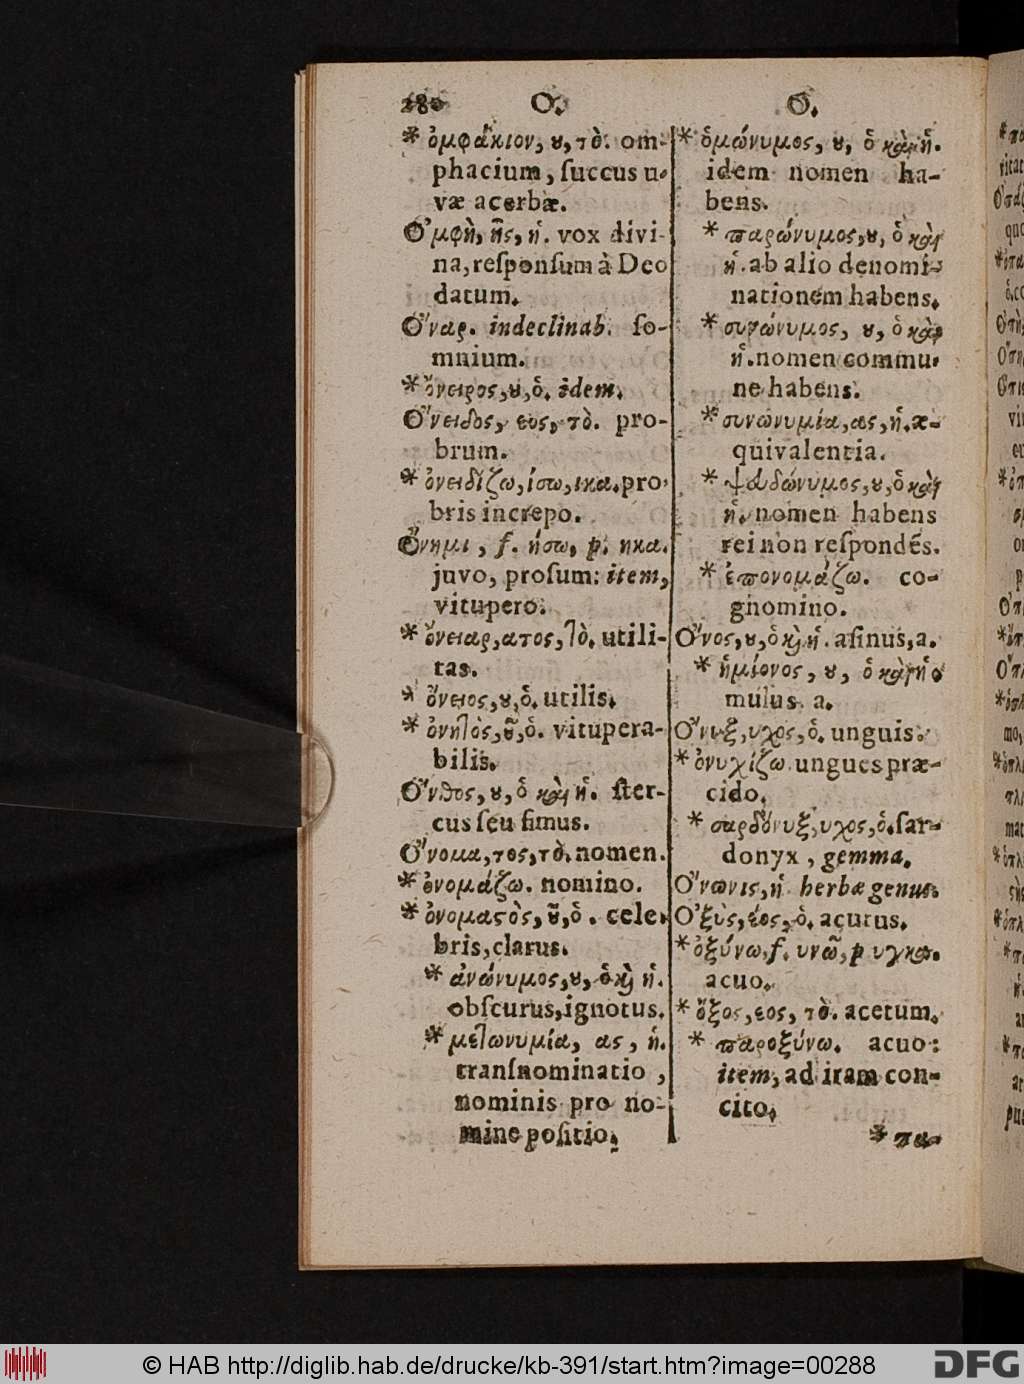 280 O. O.
* ὀμφάκιον, ȣ, τὸ. om-
phacium, ſuccus u-
væ acerbæ.
Ὀμφὴ, ῆς, ἡ. vox divi-
na, reſponſum à Deo
datum.
Ὄναρ. indeclinab. ſo-
mnium.
* ὄνειρος, ȣ, ὁ. idem.
Ὄνειδος, εος, τὸ. pro-
brum.
* ὀνειδίζω, ίσω, ικα. pro-
bris increpo.
Ὄνημι, f. ήσω, p. ηκα.
juvo, proſum: item,
vitupero.
* ὄνειαρ, ατος, τὸ. utili-
tas.
* ὄνειος, ȣ, ὁ. utilis.
* ὀνητὸς, ȣ͂, ὁ. vitupera-
bilis.
Ὄνθος, ȣ, ὁ καὶ ἡ. ſter-
cus ſeu fimus.
Ὄνομα, τος, τὸ. nomen.
* ὀνομάζω. nomino.
* ὀνομαϛὸς, ȣ͂, ὁ. cele-
bris, clarus.
* ἀνώνυμος, ȣ, ὁ κὶ ἡ.
obſcurus, ignotus.
* μετωνυμία, ας, ἡ.
tranſnominatio,
nominis pro no-
mine poſitio.
* ὁμώνυμος, ȣ, ὁ καὶ ἡ.
idem nomen ha-
bens.
* παρώνυμος, ȣ, ὁ καὶ
ἡ. ab alio denomi-
nationem habens.
* συνώνυμος, ȣ, ὁ καὶ
ἡ. nomen commu-
ne habens.
* συνωνυμία, ας, ἡ. æ-
quivalentia.
* ψευδώνυμος, ȣ, ὁ καὶ
ἡ. nomen habens
rei non reſpondẽs.
* ἐπονομάζω. co-
gnomino.
Ὄνος, ȣ, ὁ κὶ ἡ. aſinus, a.
* ἡμίονος, ȣ, ὁ καὶ ἡ
mulus. a.
Ὄνυξ, υχος, ὁ. unguis.
* ὀνυχίζω. ungues præ-
cido.
* σαρδόνυξ, υχος, ὁ. ſar-
donyx, gemma.
Ὄνωνις, ἡ herbæ genus.
Ὀξὺς, έος, ὁ. acutus.
* ὀξύνω, f. υνῶ, p υγκα.
acuo.
* ὄξος, εος, τὸ. acetum.
* παροξύνω. acuo:
item, ad iram con-
cito.
* πα-
© HAB http://diglib.hab.de/drucke/kb-391/start.htm?image=00288
DFG